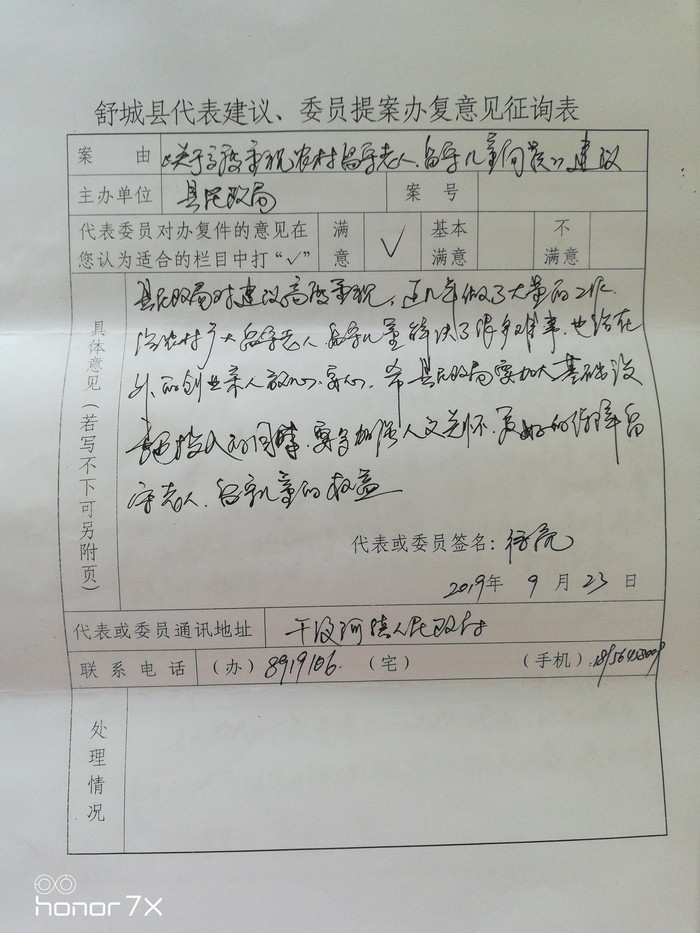 舒城县代表建议、委员提案办复意见征询表
案由 关于高度重视农村留守老人、留守儿童问题的建议
主办单位 县民政局 案号
代表委员对办复件的意见在您认为适合的栏目中打“√” 满意 √ 基本满意 不满意
具体意见(若写不下可另附页)
县民政局对建议高度重视,近几年做了大量的工作
为农村广大留守老人、留守儿童解决了很多难事,也给在
外的创业亲人放心、安心,希县民政局要加大基础设
投入的同时,要多加强人文关怀,更好的保障留
守老人、留守儿童的权益
代表或委员签名:
2019年 9 月 23 日
代表或委员通讯地址 干汊河镇人民政府
联系电话 (办)8919106. (宅) (手机):
处理情况
honor 7X